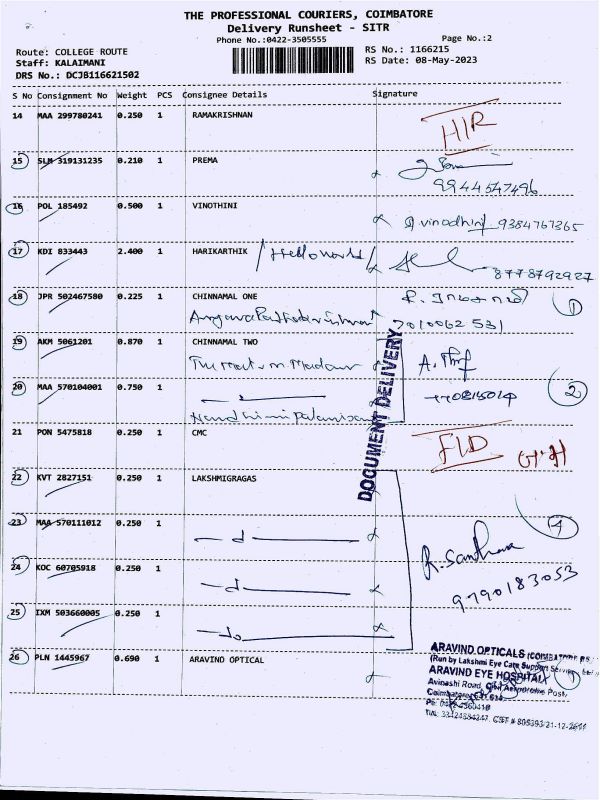 THE PROFESSIONAL COURIERS, COIMBATORE
Delivery Runsheet - SITR
Phone No.:0422-3505555 Page No.:2
Route: COLLEGE ROUTE RS No.: 1166215
Staff: KALAIMANI RS Date: 08-May-2023
DRS No.: DCJB116621502
S No Consignment No Weight PCS Consignee Details Signature
14 MAA 299780241 0.250 1 RAMAKRISHNAN HIR
15 SLM 319131235 0.210 1 PREMA
9944547496
16 POL 185492 0.500 1 VINOTHINI vinodhini 9384767365
17 KDI 833443 2.400 1 HARIKARTHIK / Helloworld / 8778792927
18 JPR 502467580 0.225 1 CHINNAMAL ONE 1
7010062531
19 AKM 5061201 0.870 1 CHINNAMAL TWO
20 MAA 570104001 0.750 1 2
DOCUMENT DELIVERY
21 PON 5475818 0.250 1 CMC FLD
22 KVT 2827151 0.250 1 LAKSHMIGRAGAS
23 MAA 570111012 0.250 1 4
24 KOC 60705918 0.250 1 R. Santhra
9790183053
25 IXM 503660005 0.250 1
26 PLN 1445967 0.690 1 ARAVIND OPTICAL 1
ARAVIND OPTICALS (COIMBATORE
(Run by Lakshmi Eye Care Support
ARAVIND EYE HOSPITAL
Avinashi Road, Civil Aerodrome Post,
Coimbatore